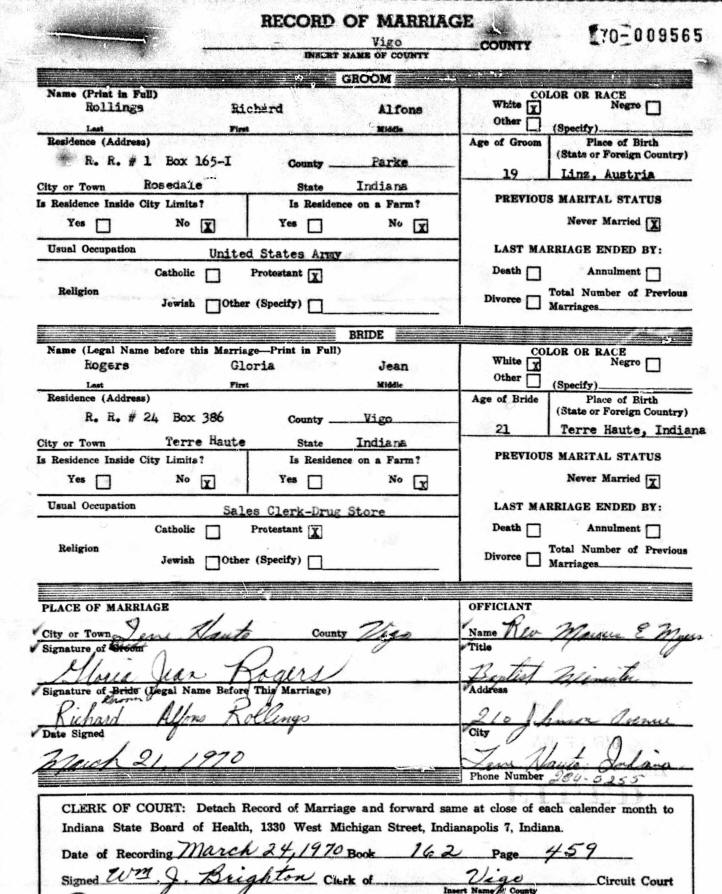 RECORD OF MARRIAGE
Vigo COUNTY
INSERT NAME OF COUNTY
70-009565
GROOM
Name (Print in Full)
Rollings Richard Alfons
Last First Middle
COLOR OR RACE
White X Negro
Other (Specify)
Residence (Address)
R. R. # 1 Box 165-I County Parke
City or Town Rosedale State Indiana
Age of Groom Place of Birth
(State or Foreign Country)
19 Linz, Austria
Is Residence Inside City Limits? Is Residence on a Farm?
Yes No X Yes No X
PREVIOUS MARITAL STATUS
Never Married X
Usual Occupation United States Army
Religion
Catholic Protestant X
Jewish Other (Specify)
LAST MARRIAGE ENDED BY:
Death Annulment
Divorce Total Number of Previous
Marriages
BRIDE
Name (Legal Name before this Marriage—Print in Full)
Rogers Gloria Jean
Last First Middle
COLOR OR RACE
White X Negro
Other (Specify)
Residence (Address)
R. R. # 24 Box 386 County Vigo
City or Town Terre Haute State Indiana
Age of Bride Place of Birth
(State or Foreign Country)
21 Terre Haute, Indiana
Is Residence Inside City Limits? Is Residence on a Farm?
Yes No X Yes No X
PREVIOUS MARITAL STATUS
Never Married X
Usual Occupation Sales Clerk-Drug Store
Religion
Catholic Protestant X
Jewish Other (Specify)
LAST MARRIAGE ENDED BY:
Death Annulment
Divorce Total Number of Previous
Marriages
PLACE OF MARRIAGE
City or Town Terre Haute County Vigo
Signature of Groom
Gloria Jean Rogers
Signature of Bride (Legal Name Before This Marriage)
Groom
Richard Alfons Rollings
Date Signed
March 21, 1970
OFFICIANT
Name Rev Marcus E Myers
Title
Baptist Minister
Address
210 Johnson Avenue
City
Terre Haute Indiana
Phone Number
CLERK OF COURT: Detach Record of Marriage and forward same at close of each calender month to
Indiana State Board of Health, 1330 West Michigan Street, Indianapolis 7, Indiana.
Date of Recording March 24, 1970 Book 162 Page 459
Signed Wm. J. Brighton Clerk of Vigo Circuit Court
Insert Name of County